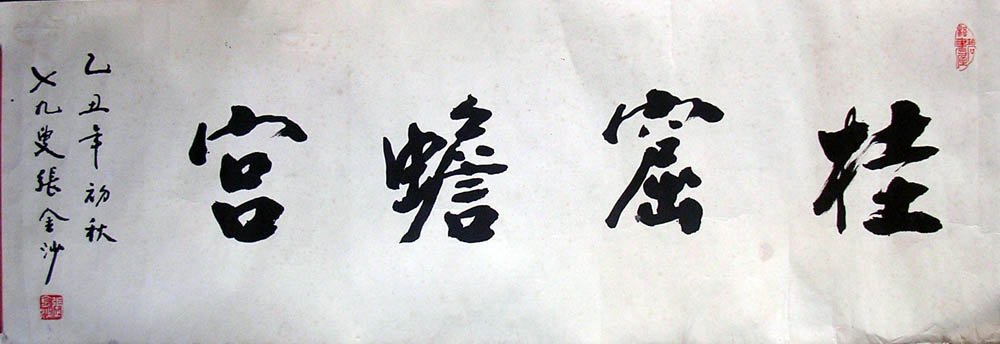 桂窟蟾宮
乙丑年初秋
七九叟張金沙